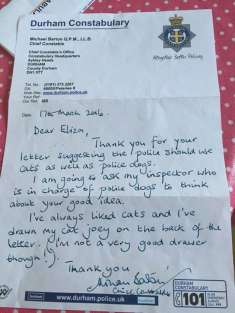 Durham Constabulary
Michael Barton Q.P.M., LL.B.
Chief Constable
Chief Constable's Office
Constabulary Headquarters
Aykley Heads
DURHAM
County Durham
DH1 5TT
Altogether Safer Policing
Date: 17th March 2016
Dear Eliza,
Thank you for your
letter suggesting the police should use
cats as well as police dogs.
I am going to ask my inspector who
is in charge of police dogs to think
about your good idea.
I've always liked cats and I've
drawn my cat Joey on the back of the
letter. I'm not a very good drawer
though!
Thank you
Chief Constable
www.durham.police.uk
DURHAM
CONSTABULARY
101